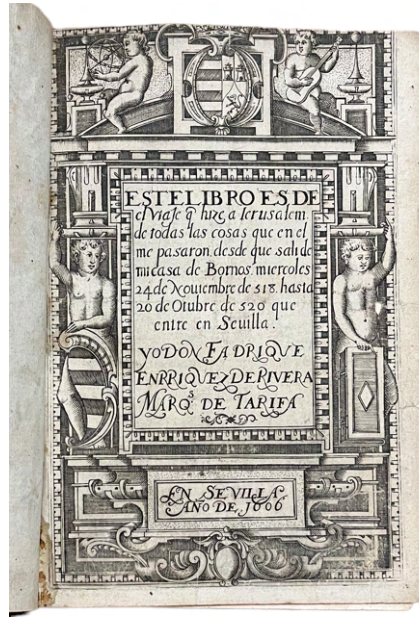 ESTE LIBRO ES DE
el Viaje q̃ hize a Ierusalem
de todas las cosas que en el
me pasaron, desde que sali de
mi casa de Bornos, miercoles
24 de Nouiembre de 518. hasta
20 de Otubre de 520 que
entre en Seuilla.
YO DON FADRIQVE
ENRRIQVEZ DE RIVERA
MARQ.S DE TARIFA
EN SEVILLA
AÑO DE, 1606